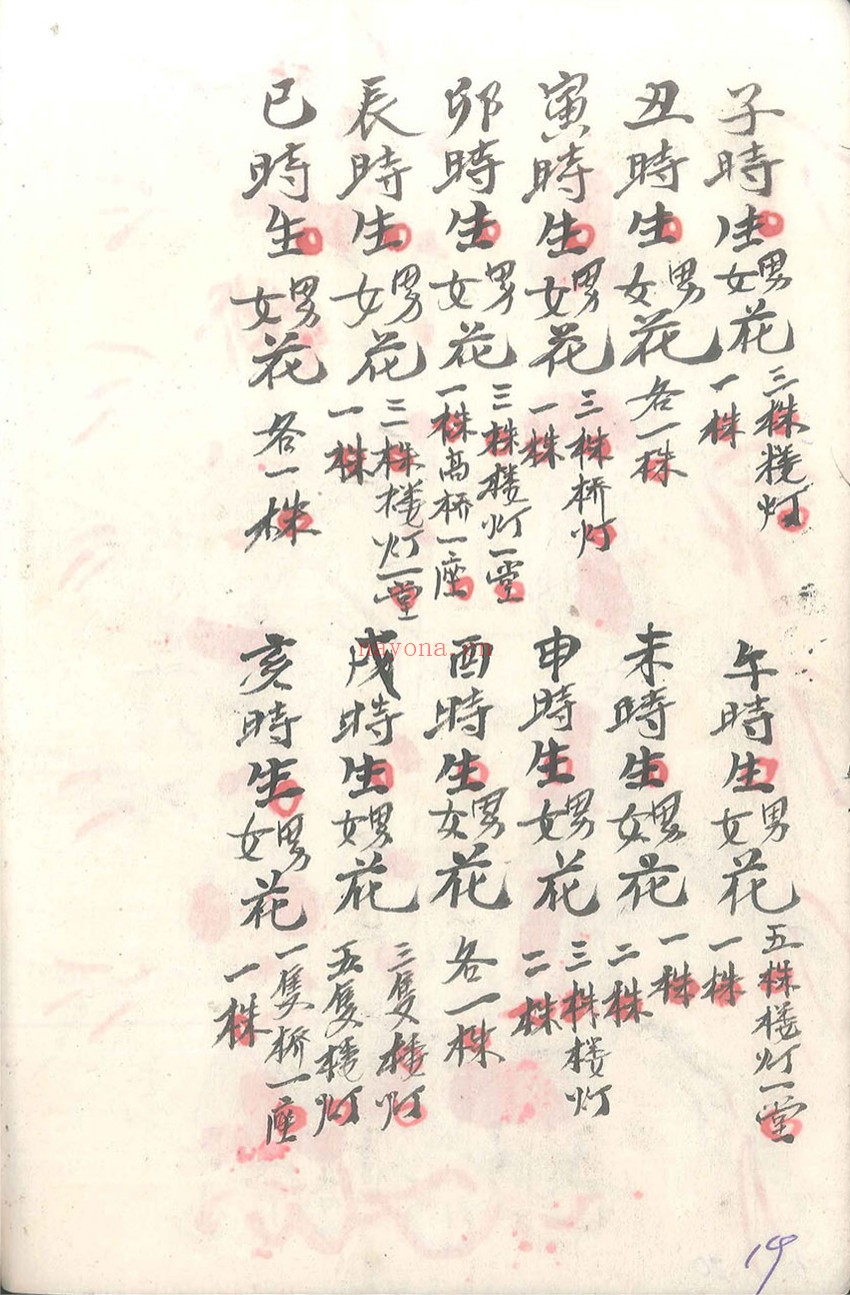 子時生男女花三株楼灯一株
丑時生男女花各一株
寅時生男女花三株桥灯一株
卯時生男女花三株楼灯一堂一株高桥一座
辰時生男女花三株楼灯一堂一株
巳時生男女花各一株
午時生男女花五株楼灯一堂一株
未時生男女花一株二株
申時生男女花三株楼灯二株
酉時生男女花各一株
戌時生男女花三隻楼灯五隻楼灯
亥時生男女花一隻桥一座一株
nayona.cn
19